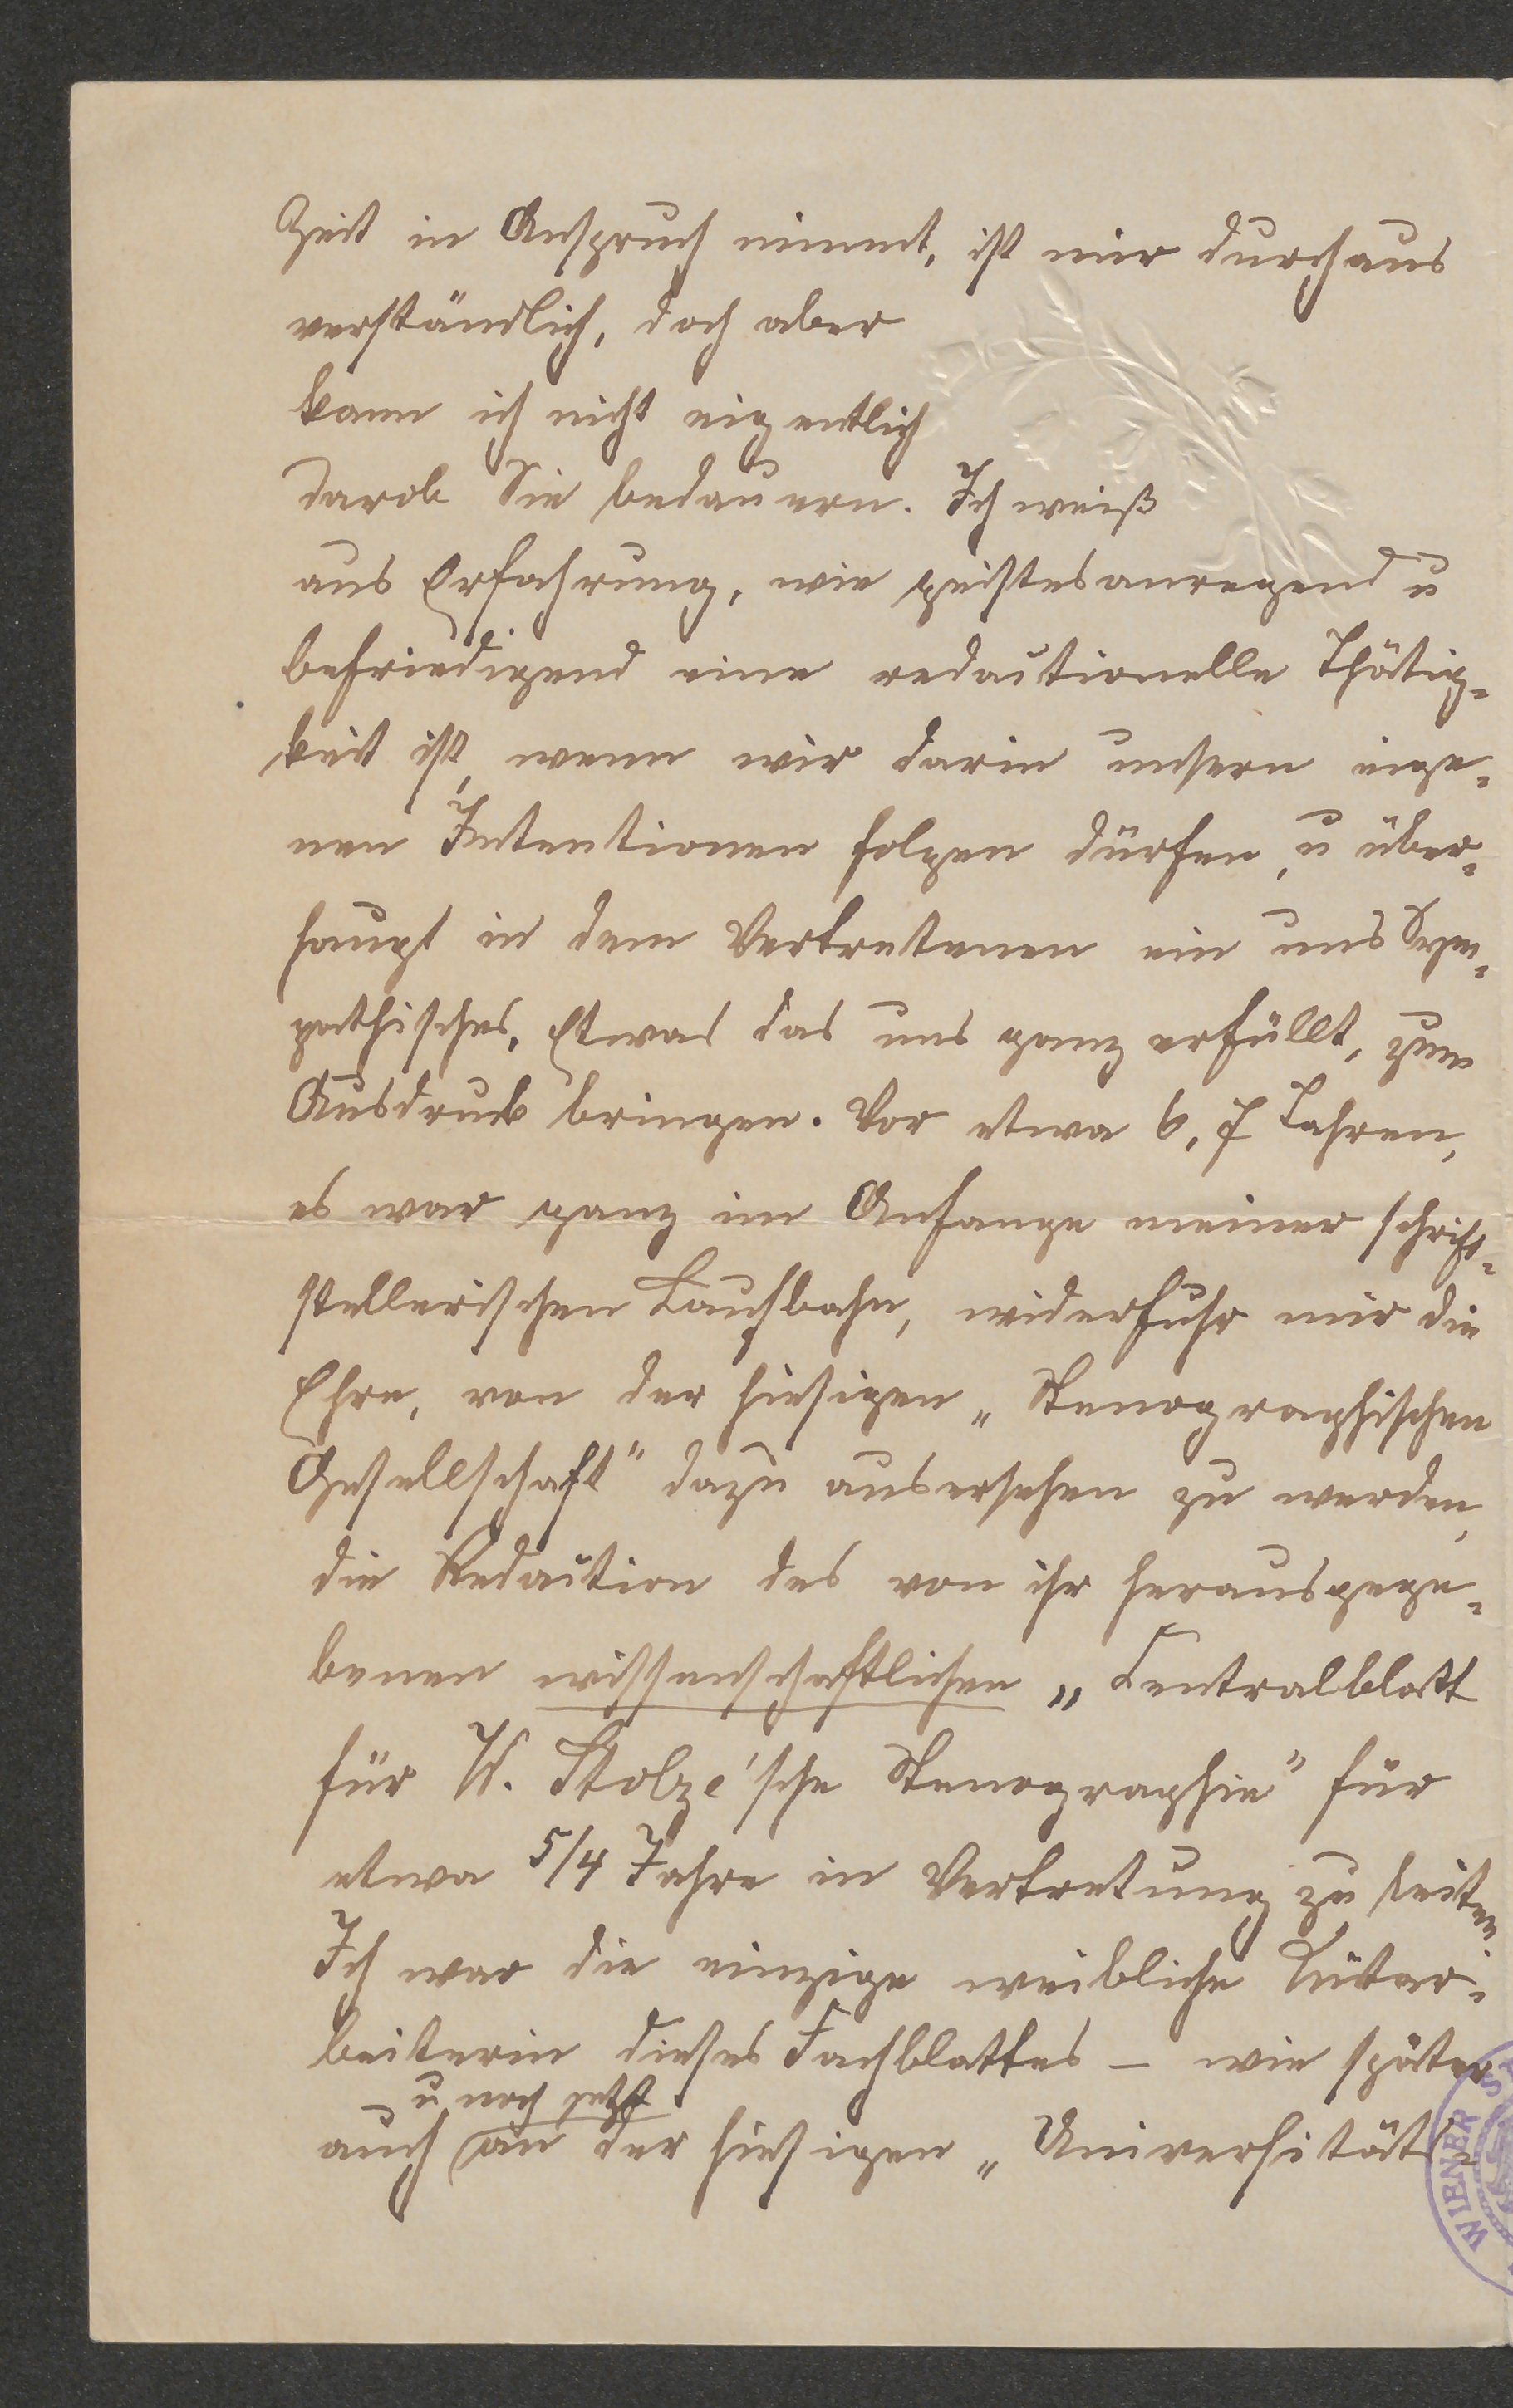 Zeit in Anspruch nimmt, ist mir durchaus
verständlich, doch aber
kann ich nicht eigentlich
darob Sie bedauern. Ich weiß
aus Erfahrung, wie geistesanregend u
befriedigend eine redactionelle Thätig-
keit ist, wenn wir darin unsern eige-
nen Intentionen folgen dürfen, u über-
haupt in dem Vertretenen ein uns Sym-
pathisches, Etwas das uns ganz erfüllt, zum
Ausdruck bringen. Vor etwa 6, 7 Jahren,
es war ganz im Anfange meiner schrift-
stellerischen Laufbahn, widerfuhr mir die
Ehre, von der hiesigen „Stenographischen
Gesellschaft" dazu ausersehen zu werden,
die Redaction des von ihr herausgege-
benen wissenschaftlichen „Centralblatt
für W. Stolze'sche Stenographie" für
etwa 5/4 Jahre in Vertretung zu leiten
Ich war die einzige weibliche Mitar-
beiterin dieses Fachblattes – wie später
u noch jetzt
auch an der hiesigen „Universitäts-
WIENER S